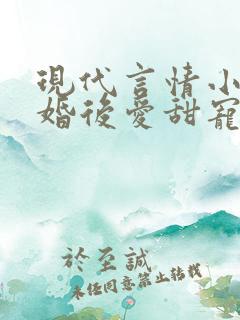 現代言情小
婚後愛甜寵
於至誠
未任同意禁止转载